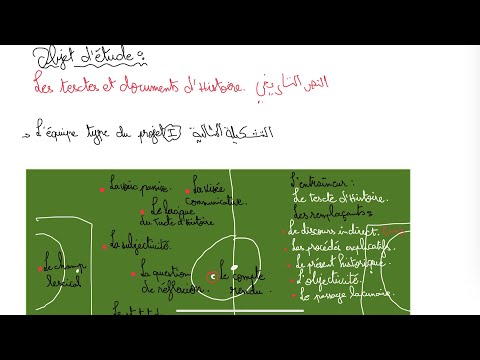 Objet d'étude :
Les textes et documents d'Histoire. النص التاريخي
L'équipe type du projet I التشكيلة المثالية
La voix passive.
La visée communicative.
Le lexique du texte d'Histoire
La subjectivité.
Le champ lexical
La question de réflexion.
Le compte rendu.
L'entraîneur :
Le texte d'Histoire.
Les remplaçants :
Le discours indirect.
Les procédés explicatifs.
Le présent historique
L'objectivité.
Le passage lacunaire.